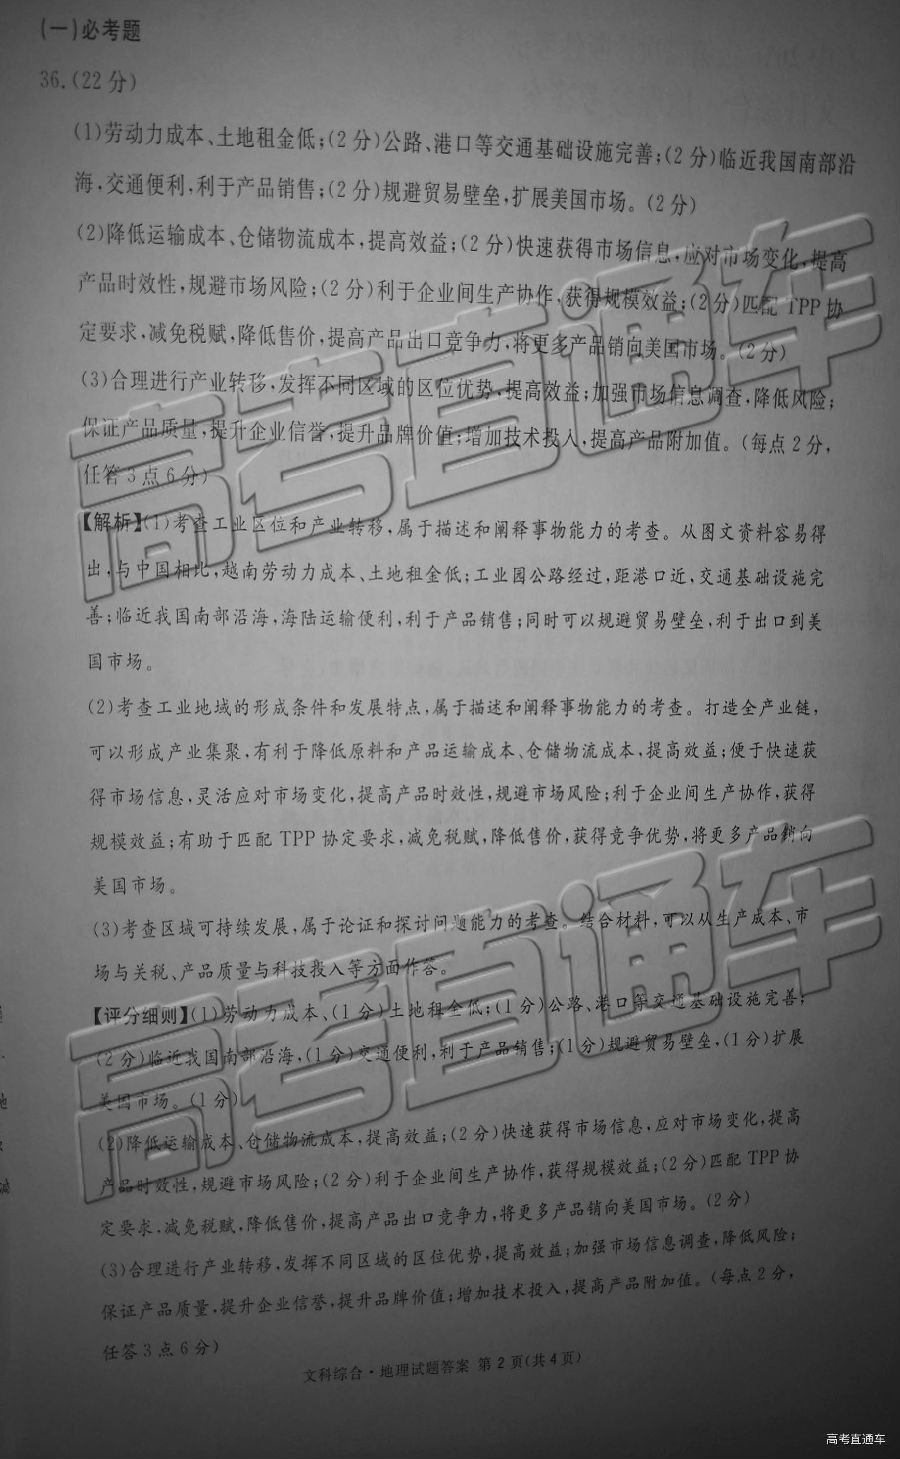 (一)必考题
36.(22分)
(1)劳动力成本、土地租金低;(2分)公路、港口等交通基础设施完善;(2分)临近我国南部沿
海,交通便利,利于产品销售;(2分)规避贸易壁垒,扩展美国市场。(2分)
(2)降低运输成本、仓储物流成本,提高效益;(2分)快速获得市场信息,应对市场变化,提高
产品时效性,规避市场风险;(2分)利于企业间生产协作,获得规模效益;(2分)匹配 TPP 协
定要求,减免税赋,降低售价,提高产品出口竞争力,将更多产品销向美国市场。(2分)
(3)合理进行产业转移,发挥不同区域的区位优势,提高效益;加强市场信息调查,降低风险;
保证产品质量,提升企业信誉,提升品牌价值;增加技术投入,提高产品附加值。(每点2分,
任答3点6分)
【解析】(1)考查工业区位和产业转移,属于描述和阐释事物能力的考查。从图文资料容易得
出,与中国相比,越南劳动力成本、土地租金低;工业园公路经过,距港口近,交通基础设施完
善;临近我国南部沿海,海陆运输便利,利于产品销售;同时可以规避贸易壁垒,利于出口到美
国市场。
(2)考查工业地域的形成条件和发展特点,属于描述和阐释事物能力的考查。打造全产业链,
可以形成产业集聚,有利于降低原料和产品运输成本、仓储物流成本,提高效益;便于快速获
得市场信息,灵活应对市场变化,提高产品时效性,规避市场风险;利于企业间生产协作,获得
规模效益;有助于匹配 TPP 协定要求,减免税赋,降低售价,获得竞争优势,将更多产品销向
美国市场。
(3)考查区域可持续发展,属于论证和探讨问题能力的考查。结合材料,可以从生产成本、市
场与关税、产品质量与科技投入等方面作答。
【评分细则】(1)劳动力成本、(1分)土地租金低;(1分)公路、港口等交通基础设施完善;
(2分)临近我国南部沿海,(1分)交通便利,利于产品销售;(1分)规避贸易壁垒,(1分)扩展
美国市场。(1分)
(2)降低运输成本、仓储物流成本,提高效益;(2分)快速获得市场信息,应对市场变化,提高
产品时效性,规避市场风险;(2分)利于企业间生产协作,获得规模效益;(2分)匹配 TPP 协
定要求,减免税赋,降低售价,提高产品出口竞争力,将更多产品销向美国市场。(2分)
(3)合理进行产业转移,发挥不同区域的区位优势,提高效益;加强市场信息调查,降低风险;
保证产品质量,提升企业信誉,提升品牌价值;增加技术投入,提高产品附加值。(每点2分,
任答3点6分)
文科综合·地理试题答案 第2页(共4页)
高考直通车
高考直通车
高考直通车